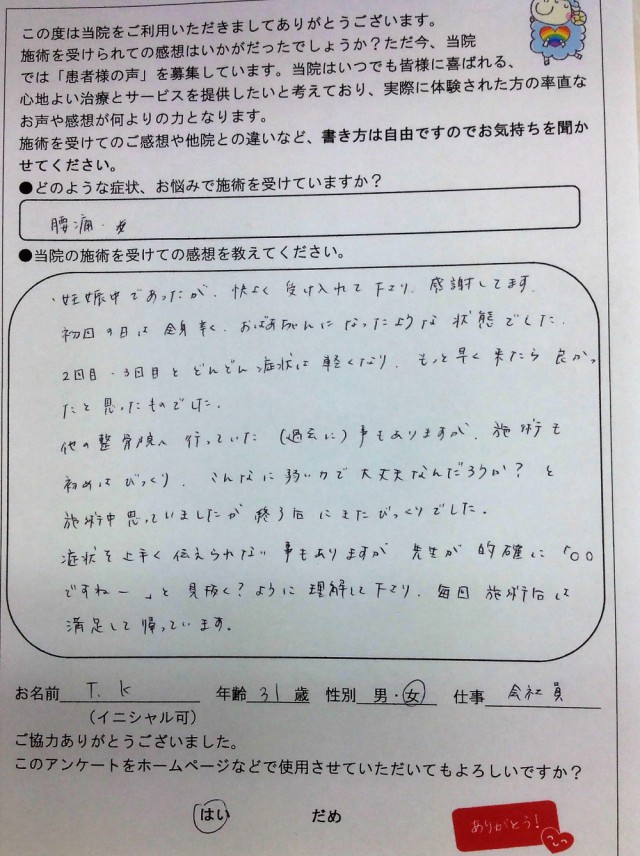 この度は当院をご利用いただきましてありがとうございます。
施術を受けられての感想はいかがだったでしょうか？ただ今、当院
では「患者様の声」を募集しています。当院はいつでも皆様に喜ばれる、
心地よい治療とサービスを提供したいと考えており、実際に体験された方の率直な
お声や感想が何よりの力となります。
施術を受けてのご感想や他院との違いなど、書き方は自由ですのでお気持ちを聞か
せてください。
●どのような症状、お悩みで施術を受けていますか？
腰痛・
●当院の施術を受けての感想を教えてください。
・妊娠中であったが、快よく受け入れて下さり、感謝してます。
初回の日は全身辛く、おばあちゃんになったような状態でした。
2回目・3回目とどんどん症状は軽くなり、もっと早く来たら良かっ
たと思ったものでした。
他の整骨院へ行っていた（過去に）事もありますが、施術も
初めはびっくり、こんなに弱い力で大丈夫なんだろうか？と
施術中思っていましたが終了后にまたびっくりでした。
症状を上手く伝えられない事もありますが先生が的確に「○○
ですねー」と見抜く？ように理解して下さり、毎回施術后は
満足して帰っています。
お名前 T.K 年齢 31 歳 性別 男・女 仕事 会社員
（イニシャル可）
ご協力ありがとうございました。
このアンケートをホームページなどで使用させていただいてもよろしいですか？
はい だめ
ありがとう！